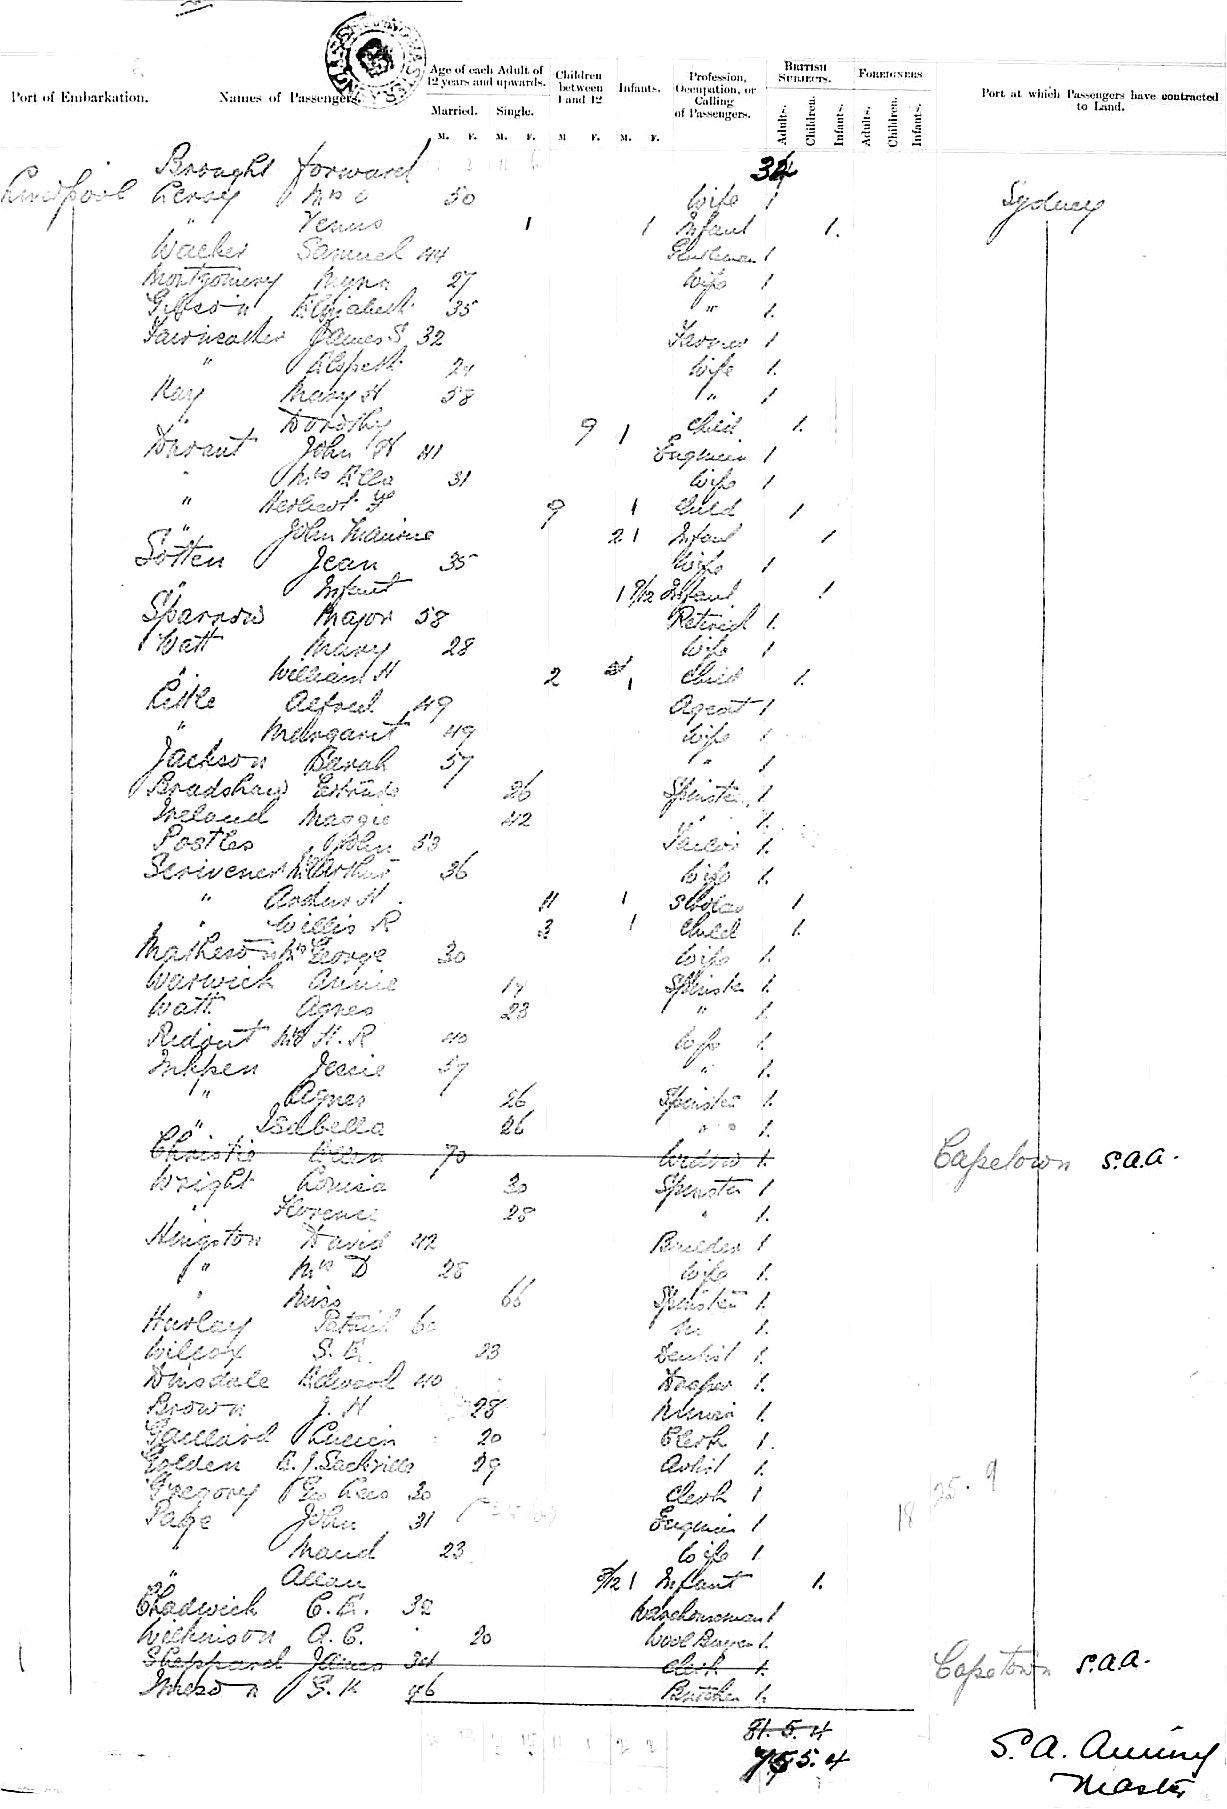 Port of Embarkation. Names of Passengers. Age of each Adult of 12 years and upwards. Children between 1 and 12 Infants. Profession, Occupation, or Calling of Passengers. BRITISH SUBJECTS. FOREIGNERS Port at which Passengers have contracted to Land.
Married. Single. Adults. Children. Infants. Adults. Children. Infants.
M. F. M. F. M F. M. F.
Brought forward 34
Liverpool Leroy Mrs 50 Wife 1 Sydney
" Venus 1 1 Infant 1.
Walker Samuel 44 Gentleman 1
Montgomery Myra 27 Wife 1
Gibson Elizabeth 35 " 1.
Fairweather James S 32 Farmer 1
" Elspeth 24 Wife 1.
Kay Mary H 58 " 1
" Dorothy 9 1 Child 1.
Durant John H 41 Engineer 1
" Mrs Ella 31 Wife 1
" Herbert 9 1 Child 1
" John Maurice 2 1 Infant 1
Sotten Jean 35 Wife 1
" Infant 1 9/12 Infant 1
Sparrow Major 58 Retired 1.
Watt Mary 28 Wife 1
" William H 2 1 Child 1.
Little Alfred 49 Agent 1
" Margaret 49 Wife 1
Jackson Sarah 57 " 1
Bradshaw Gertrude 26 Spinster 1
Ireland Maggie 42 " 1.
Postles John 53 Tailor 1.
Scrivener Mrs Arthur 36 Wife 1.
" H 11 1 Scholar 1
" Willis R 3 1 Child 1.
Mathewson Mrs George 30 Wife 1.
Warwick Annie 19 Spinster 1.
Watt Agnes 23 " 1.
Ridout Mrs H. R 40 Wife 1.
Inkpen Jessie 57 " 1.
" Agnes 26 Spinster 1.
" Isabella 26 " 1.
Christie Ellen 70 Widow 1. Capetown S.A.A.
Wright Louisa 30 Spinster 1
" Florence 28 " 1.
Kingston David 42 Builder 1
" Mrs D 28 Wife 1.
" Miss 66 Spinster 1.
Hurley Patrick 60 1.
Wilcox S. E. 23 Dentist 1.
Dinsdale Edward 40 Draper 1.
Brown J. H 28 1.
Gaillard Lucien 20 Clerk 1.
Golden E. J. Sackville 29 Artist 1.
Gregory Geo Lees 30 Clerk 1 25. 9
Page John 31 Engineer 1 18
" Maud 23 Wife 1
" Allan 9/12 1 Infant 1.
Chadwick C. E. 32 Warehouseman 1
Wilkinson A. C. 20 Wool Buyer 1.
Sheppard James 34 Clerk 1. Capetown S.A.A.
Imeson G. H 46 Butcher 1.
81. 5. 4
75 5. 4
S. A.
Master